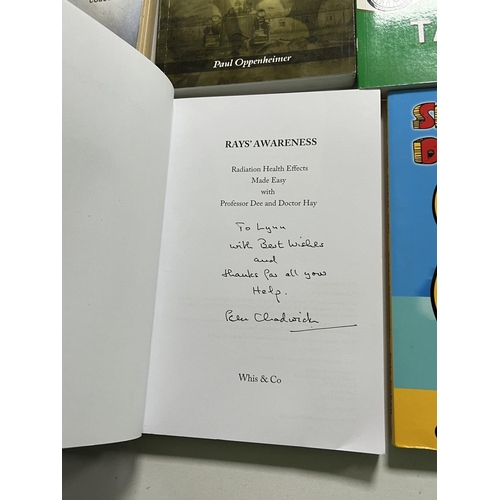 Paul Oppenheimer
TA
RAYS' AWARENESS
Radiation Health Effects
Made Easy
with
Professor Dee and Doctor Hay
To Lynn
with Best Wishes
and
thanks for all your
Help.
Chadwick
Whis & Co